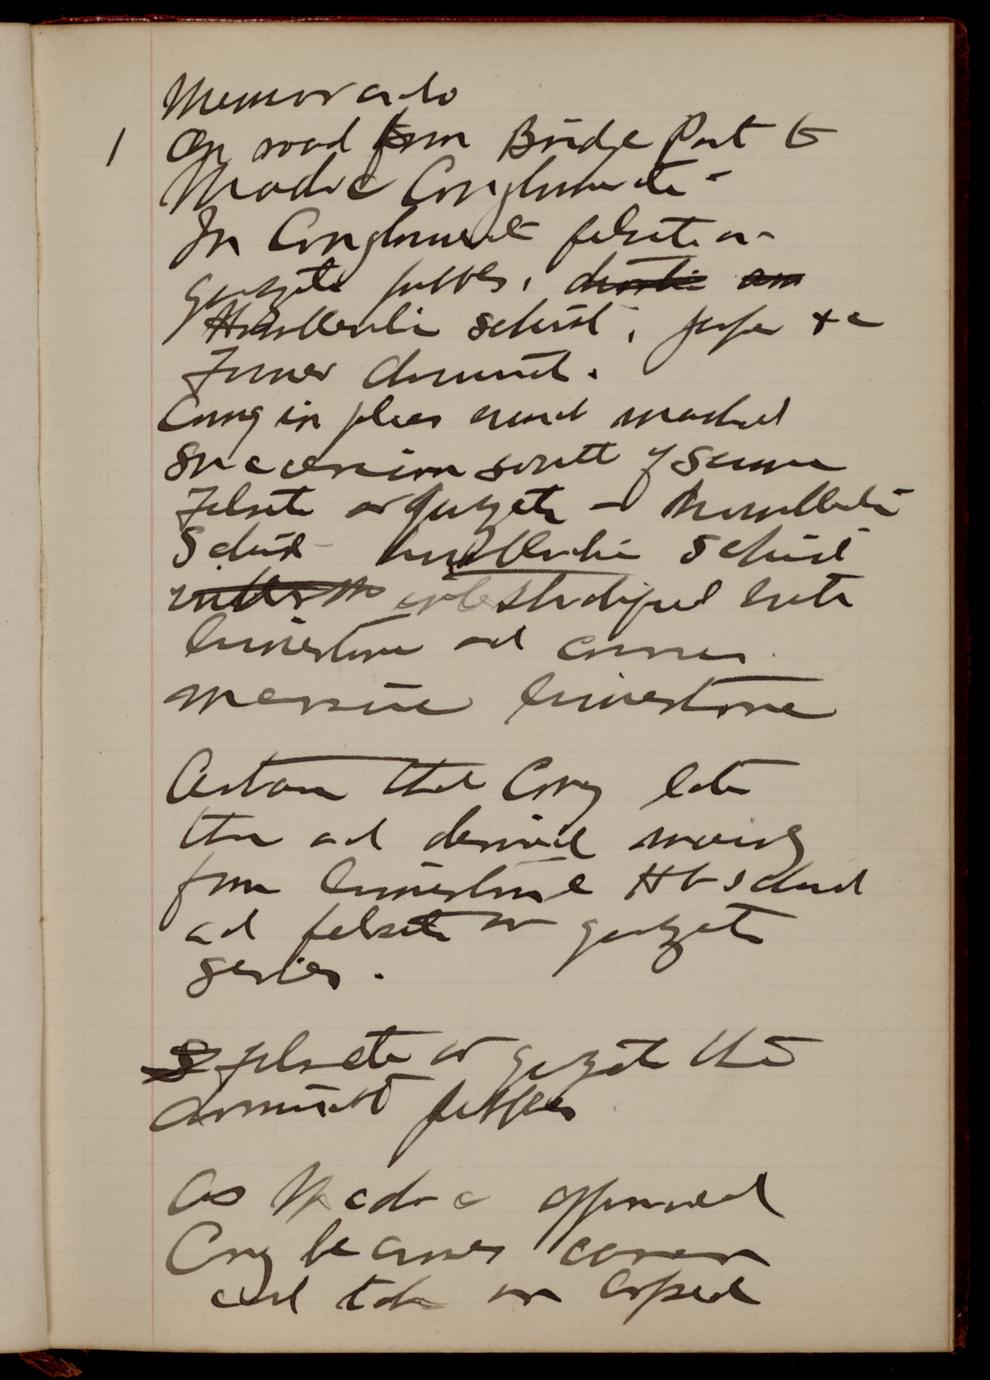 Memoranda
1 On road from Bridge Port to
Madoc Conglomerate -
In Conglomerate felsite or
quartzite pebbles,
Hornblendic schist, jasper &c
Former dominant.
Cong in places
Succession south of same
Felsite or quartzite - Hornblendic
Schist - hornblendic schist
interstratified with
limestone and
massive limestone
Certain that Cong later
than and derived mainly
from limestone Hb schist
and felsite or quartzite
series.
felsite or quartzite the
dominant pebbles
As Madoc approached
Cong becomes coarser
and takes on